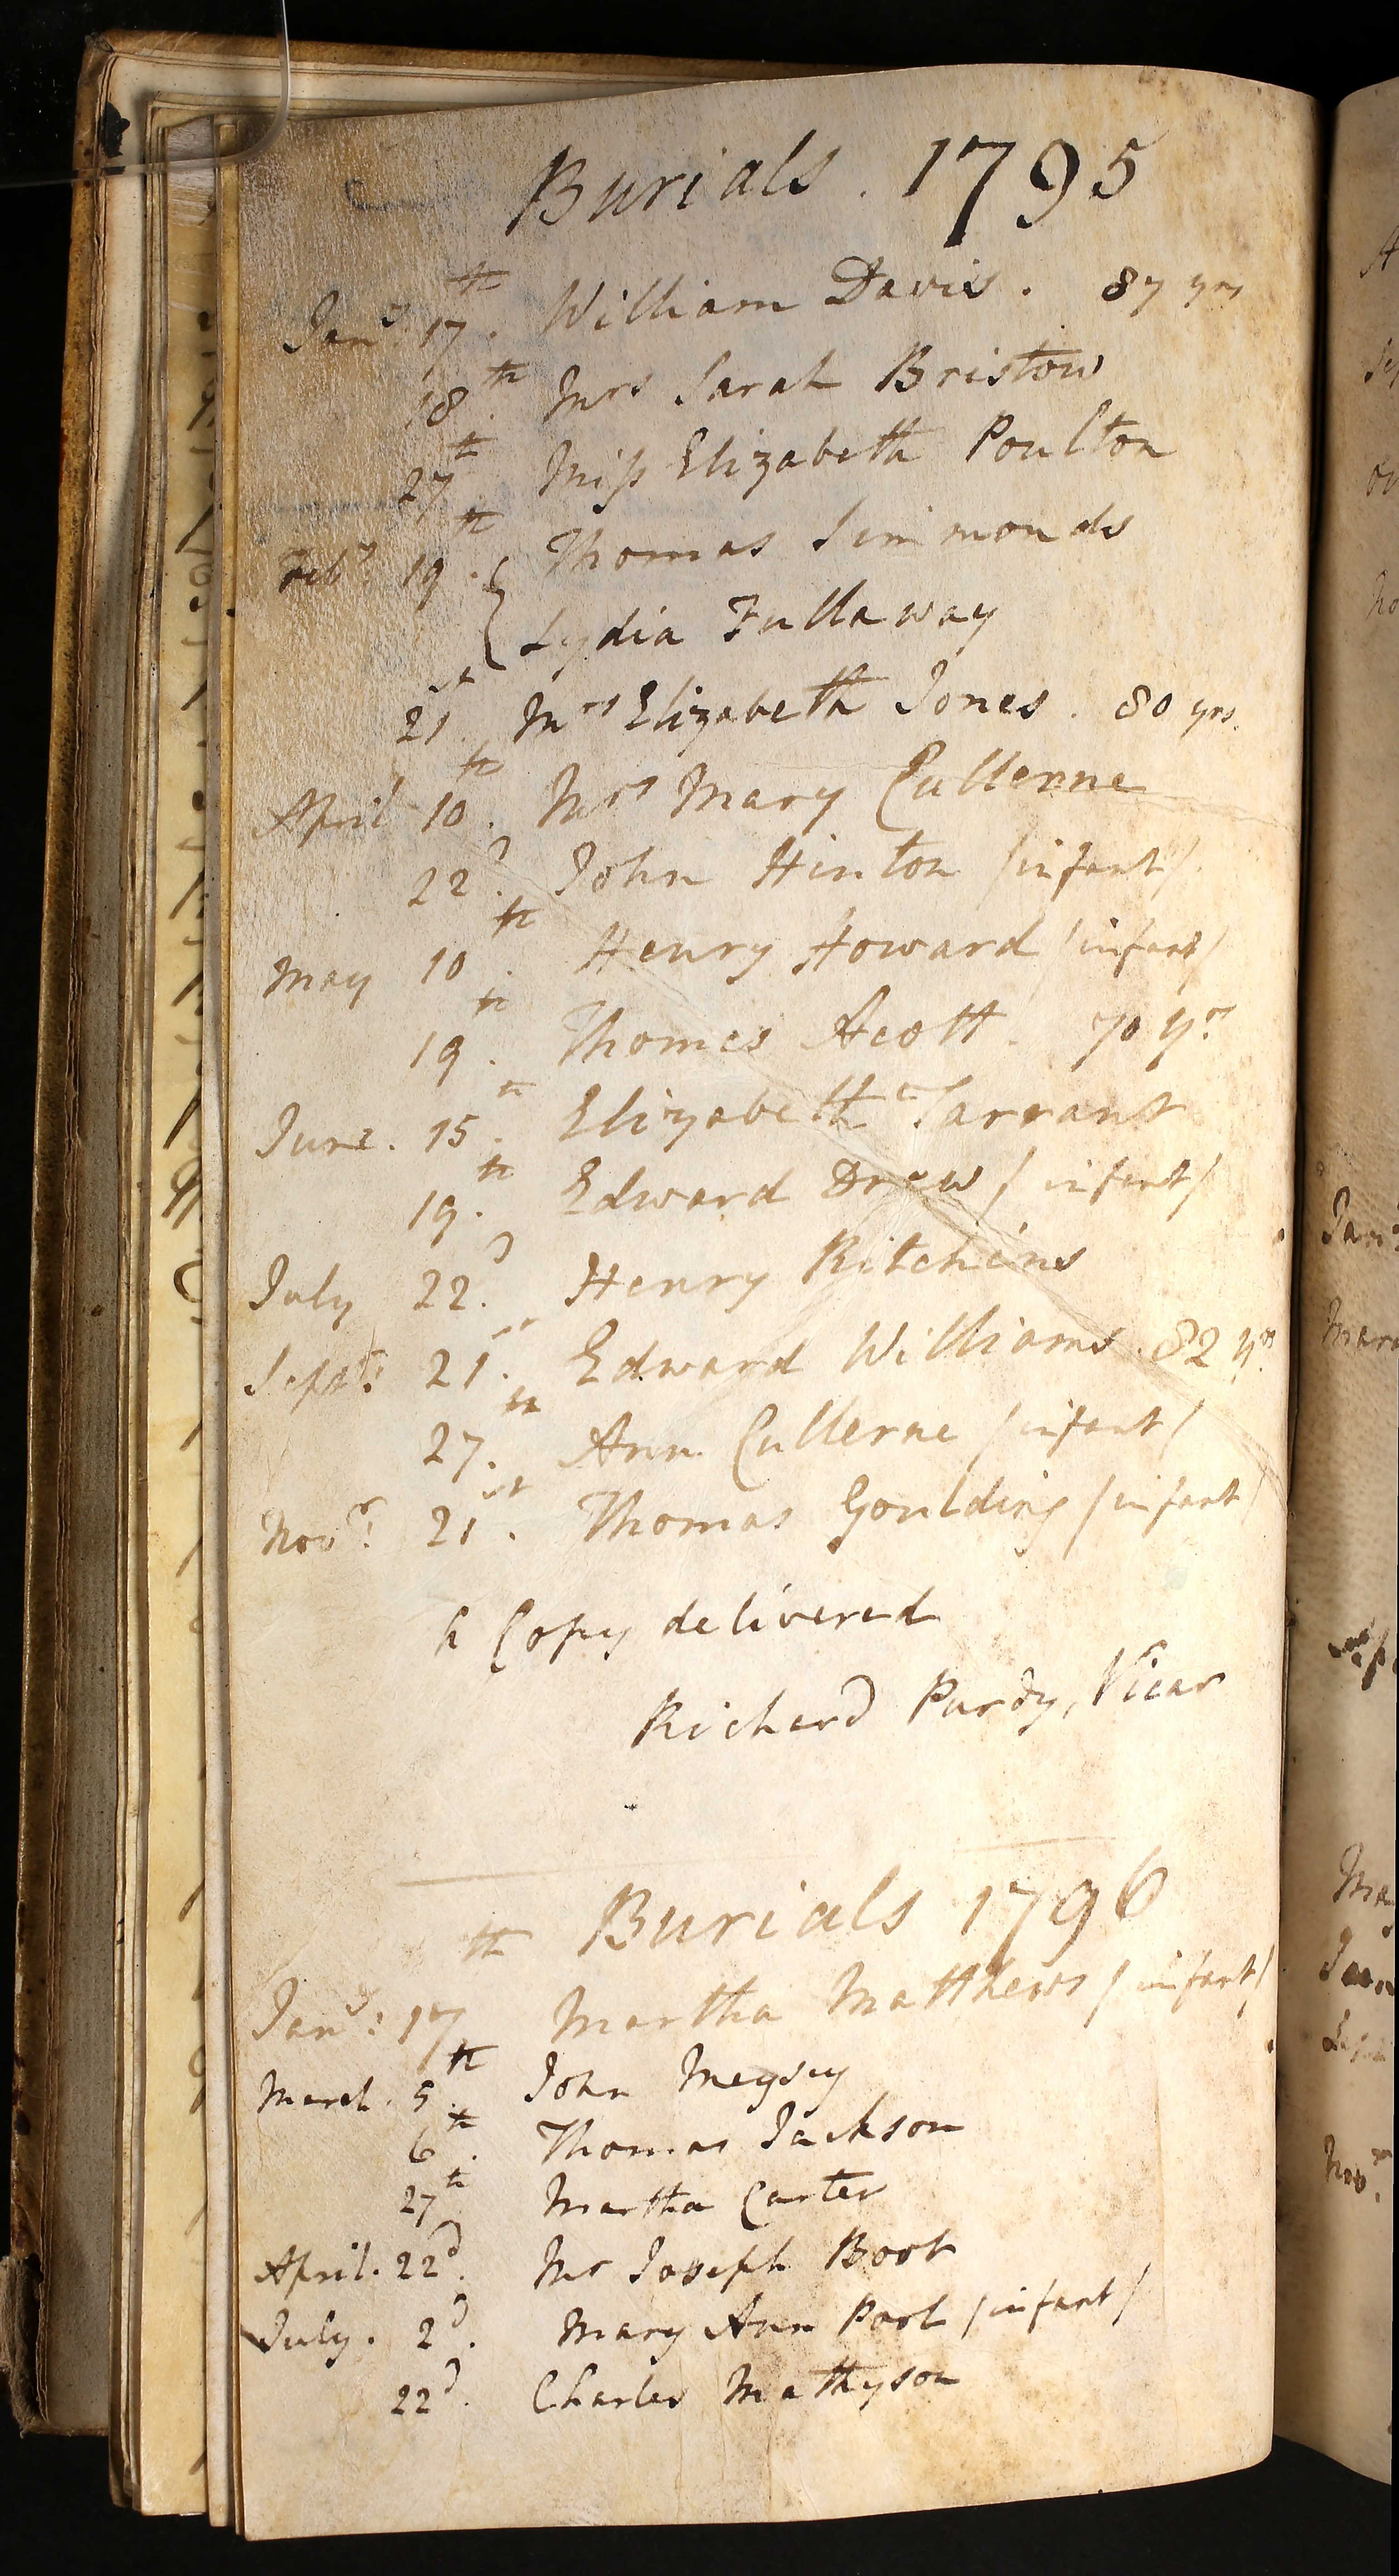 Burials . 1795
Jan.y 17th . William Davis . 87 yrs
18th . Mrs Sarah Bristow
27th . Miss Elizabeth Poulton
Feb.y 19th . { Thomas Simmonds
{ Lydia Fullaway
21st . Mrs Elizabeth Jones . 80 yrs.
April 10th . Mrs Mary Cullerne
22d . John Hinton /infant/
May 10th . Henry Howard /infant/
19th . Thomas Acott . 70 yrs
June . 15th . Elizabeth Tarrant
19th . Edward Drew /infant/
July 22d . Henry Kitchins
Septr: 21st . Edward Williams . 82 yrs
27th . Ann Cullerne /infant/
Novr: 21st . Thomas Goulding /infant/
A Copy delivered
Richard Purdy, Vicar
Burials 1796
Jan.y: 17th Martha Matthews /infant/
March . 5th . John Meysey
6th . Thomas Jackson
27th Martha Carter
April . 22d . Mr Joseph Boot
July . 2d . Mary Ann Poot /infant/
22d . Charles Mathyson